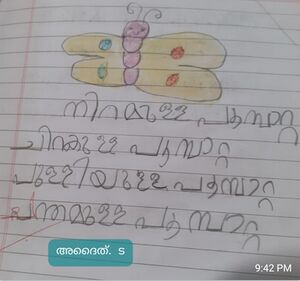 നിറമുള്ള പൂമ്പാറ്റ
ചിറകുള്ള പൂമ്പാറ്റ
പുള്ളിയുള്ള പൂമ്പാറ്റ
ചന്തമുള്ള പൂമ്പാറ്റ
അദൈത്. S
9:42 PM